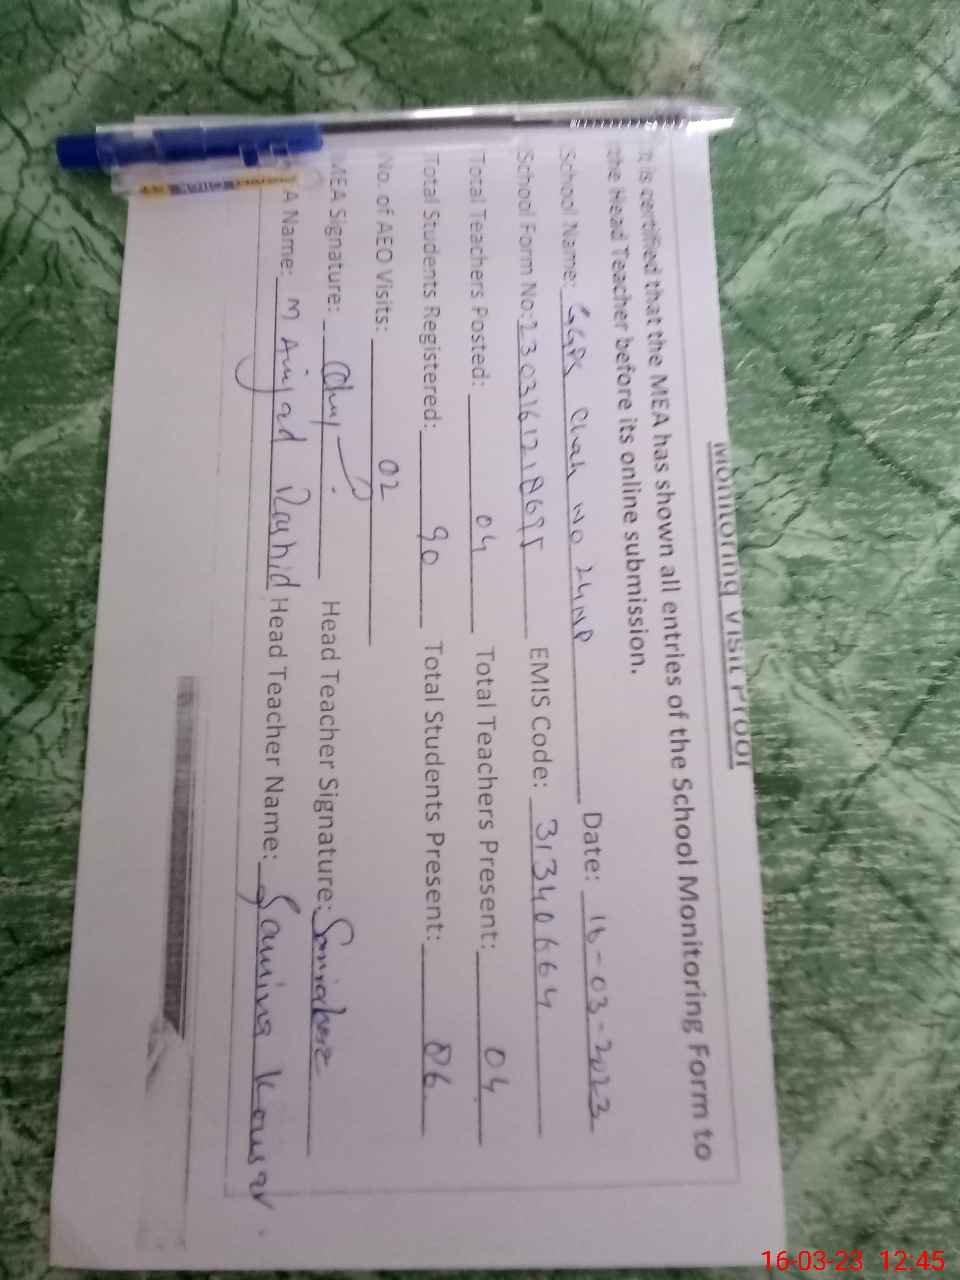 Monitoring Visit Proof
It is certified that the MEA has shown all entries of the School Monitoring Form to
the Head Teacher before its online submission.
School Name: GGPS Chak No 24NP Date: 16-03-2023
School Form No: EMIS Code: 31340664
Total Teachers Posted: 04 Total Teachers Present: 04
Total Students Registered: 90 Total Students Present: 86
No. of AEO Visits: 02
MEA Signature: Head Teacher Signature:
A Name: M Amjad Rashid Head Teacher Name: Samina Kousar
16-03-23 12:45